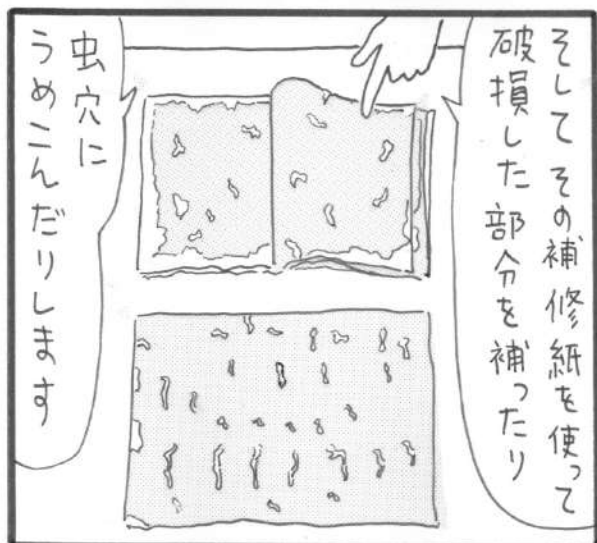 そして その補修紙を使って
破損した部分を補ったり
虫穴に
うめこんだりします